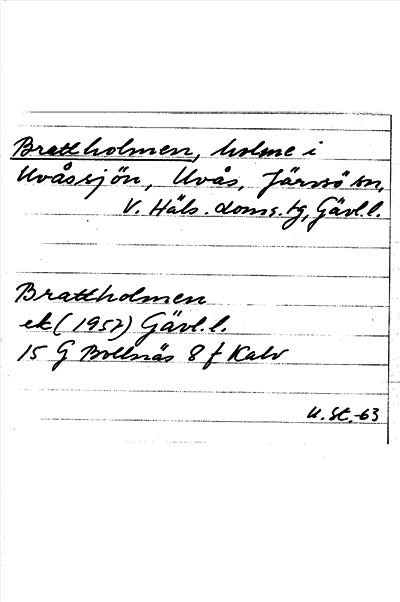 Brattholmen, holme i
Uvåssjön, Uvås, Järvsö sn,
V. Häls. doms. tg, Gävl.l.
Brattholmen
ek (1957) Gävl.l.
15 G Bollnäs 8 f Kalv
U.St.-63